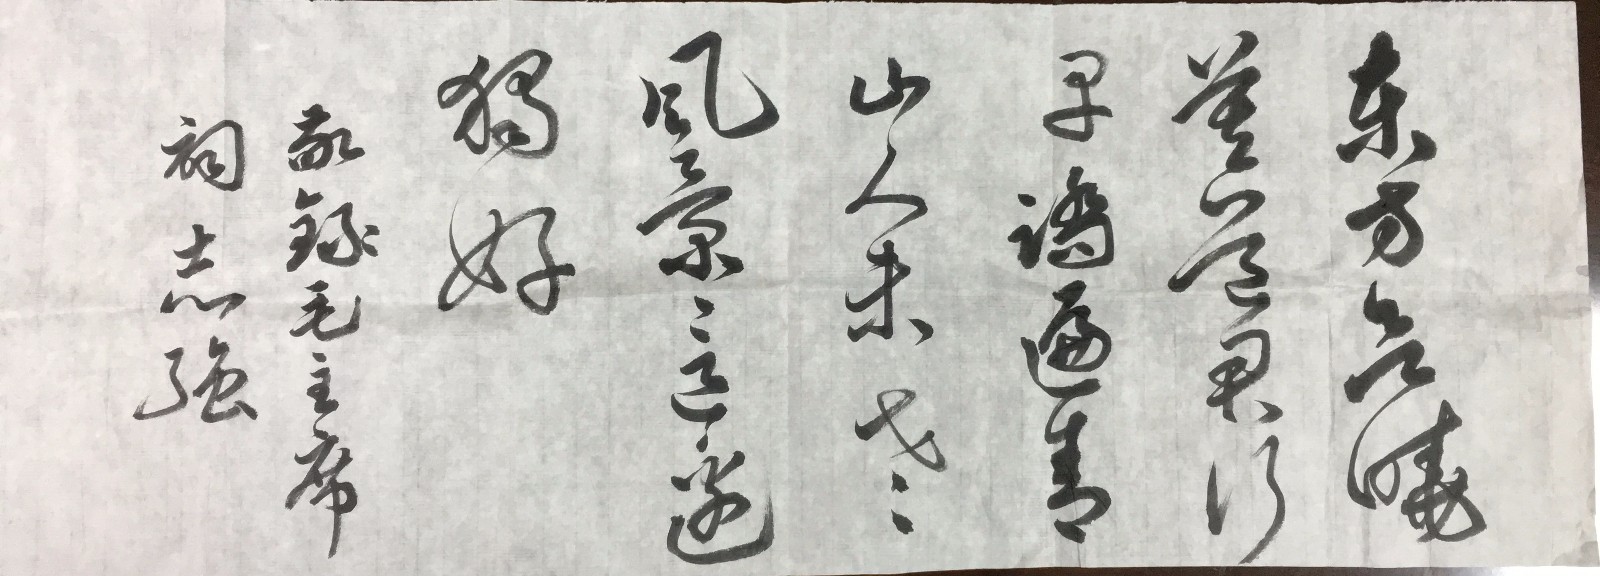 东方欲晓
莫道君行
早踏遍青
山人未老
风景這邊
獨好
敬録毛主席
词志强